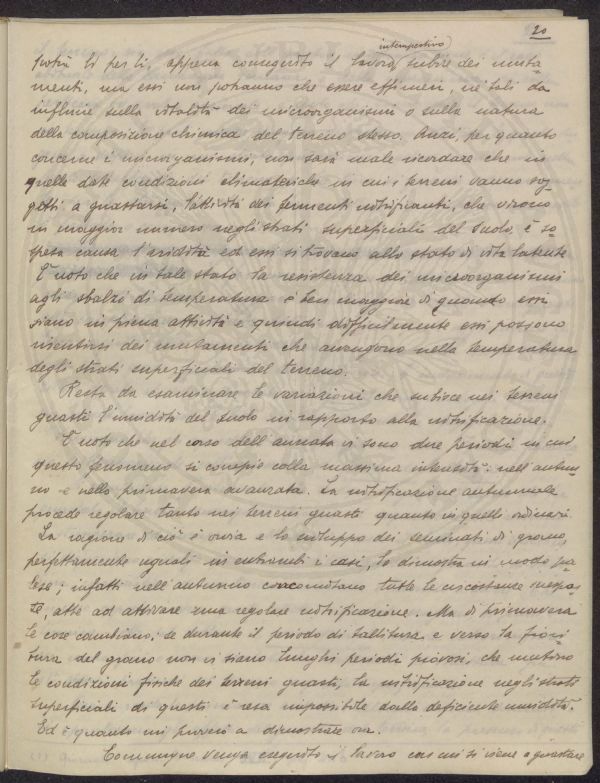 20
intempestivo
potrà lì per lì, appena compiuto il lavoro, subire dei muta-
menti, ma essi non potranno che essere effimeri, nè tali da
influire sulla vitalità dei microorganismi o sulla natura
della composizione chimica del terreno stesso. Anzi, per quanto
concerne i microrganismi, non sarà male ricordare che in
quelle date condizioni climateriche in cui i terreni vanno sog-
getti a guastarsi, l'attività dei fermenti nitrificanti, che vivono
in maggior numero negli strati superficiali del suolo, è so-
spesa causa l'aridità ed essi si trovano allo stato di vita latente.
È noto che in tale stato la resistenza dei microorganismi
agli sbalzi di temperatura è ben maggiore di quando essi
siano in piena attività e quindi difficilmente essi possono
risentirsi dei mutamenti che avvengono nella temperatura
degli strati superficiali del terreno.
Resta da esaminare le variazioni che subisce nei terreni
guasti l'umidità del suolo in rapporto alla nitrificazione.
È noto che nel corso dell'annata vi sono due periodi in cui
questo fenomeno si compie colla massima intensità: nell'autun-
no e nella primavera avanzata. La nitrificazione autunnale
procede regolare tanto nei terreni guasti quanto in quelli ordinari.
La ragione di ciò è ovvia e lo sviluppo dei seminati di grano,
perfettamente uguali in entrambi i casi, lo dimostra in modo pa-
lese; infatti nell'autunno concomitano tutte le circostanze
atte ad attivare una regolare nitrificazione. Ma di primavera
le cose cambiano; se durante il periodo di tallitura e verso la fiori-
tura del grano non vi siano lunghi periodi piovosi, che mutino
le condizioni fisiche dei terreni guasti, la nitrificazione negli strati
superficiali di questi è resa impossibile dalla deficiente umidità.
Ed è quanto mi provo a dimostrare ora.
Comunque venga eseguito il lavoro con cui si viene a guastare